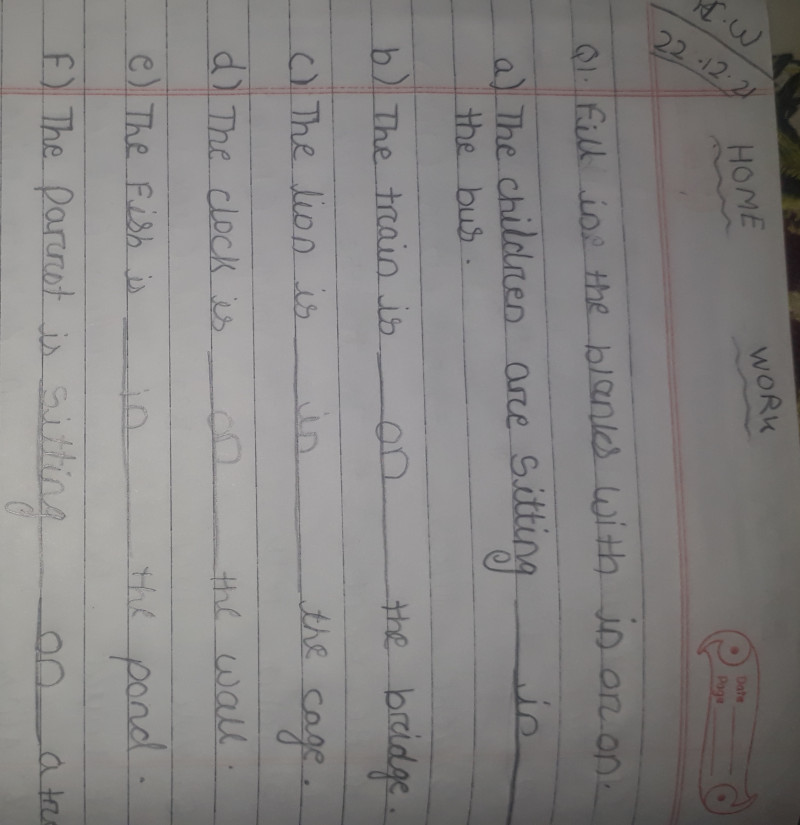 H.W
22.12.21
HOME WORK
Date
Page
Q1. Fill in the blanks with in or on.
a) The children are sitting in
the bus.
b) The train is on the bridge.
c) The lion is in the cage.
d) The clock is on the wall.
e) The Fish is in the pond.
F) The parrot is sitting on a